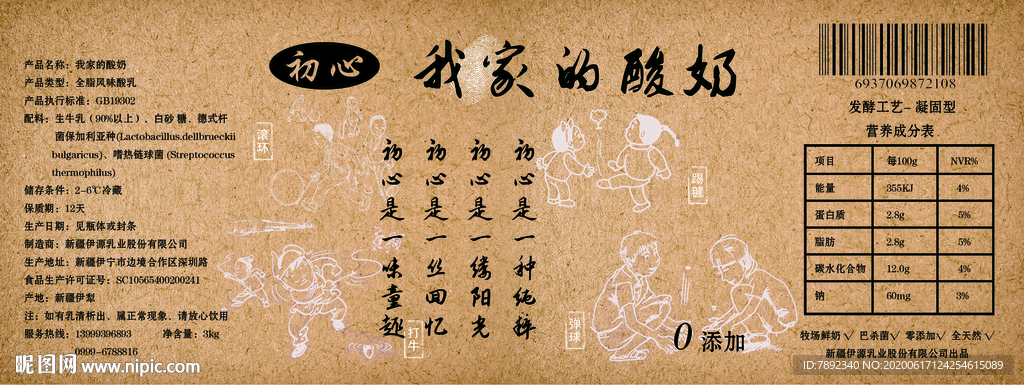 产品名称：我家的酸奶
产品类型：全脂风味酸乳
产品执行标准：GB19302
配料：生牛乳（90%以上）、白砂 糖、德式杆
菌保加利亚种(Lactobacillus.dellbrueckii
bulgaricus)、嗜热链球菌 (Streptococcus
thermophilus)
储存条件：2-6℃冷藏
保质期：12天
生产日期：见瓶体或封条
制造商：新疆伊源乳业股份有限公司
生产地址：新疆伊宁市边境合作区深圳路
食品生产许可证号：SC10565400200241
产地：新疆伊犁
注：如有乳清析出、属正常现象、请放心饮用
服务热线：13999396893 净含量：3kg
0999-6788816
初心
我家的酸奶
滚环
踢毽
打牛
弹球
初心是一种纯粹
初心是一缕阳光
初心是一丝回忆
初心是一味童趣
0 添加
6937069872108
发酵工艺- 凝固型
营养成分表
项目 每100g NVR%
能量 355KJ 4%
蛋白质 2.8g 5%
脂肪 2.8g 5%
碳水化合物 12.0g 4%
钠 60mg 3%
牧场鲜奶√ 巴杀菌√ 零添加√ 全天然√
新疆伊源乳业股份有限公司出品
昵图网 www.nipic.com
ID:7892340 NO:20200617124254615089